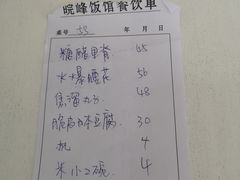 皖峰饭馆餐饮单
桌号 55 年 月 日
糖醋里脊 65
水爆腰花 56
焦溜丸子 48
脆皮日本豆腐 30
纸 4
米小2碗 4